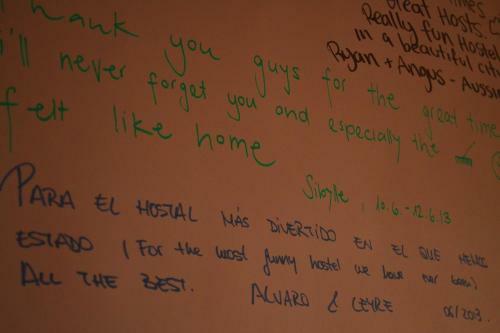 Great Hosts.
Really fun Hostel
in a beautiful city
Ryan + Angus - Aussi
Thank you guys for the great time
i'll never forget you and especially the
felt like home
Sibylle, 10.6.-12.6.13
PARA EL HOSTAL MÁS DIVERTIDO EN EL QUE HEMOS
ESTADO (For the most funny hostel we have ever been)
ALL THE BEST. ALVARO & LEYRE 06/2013.